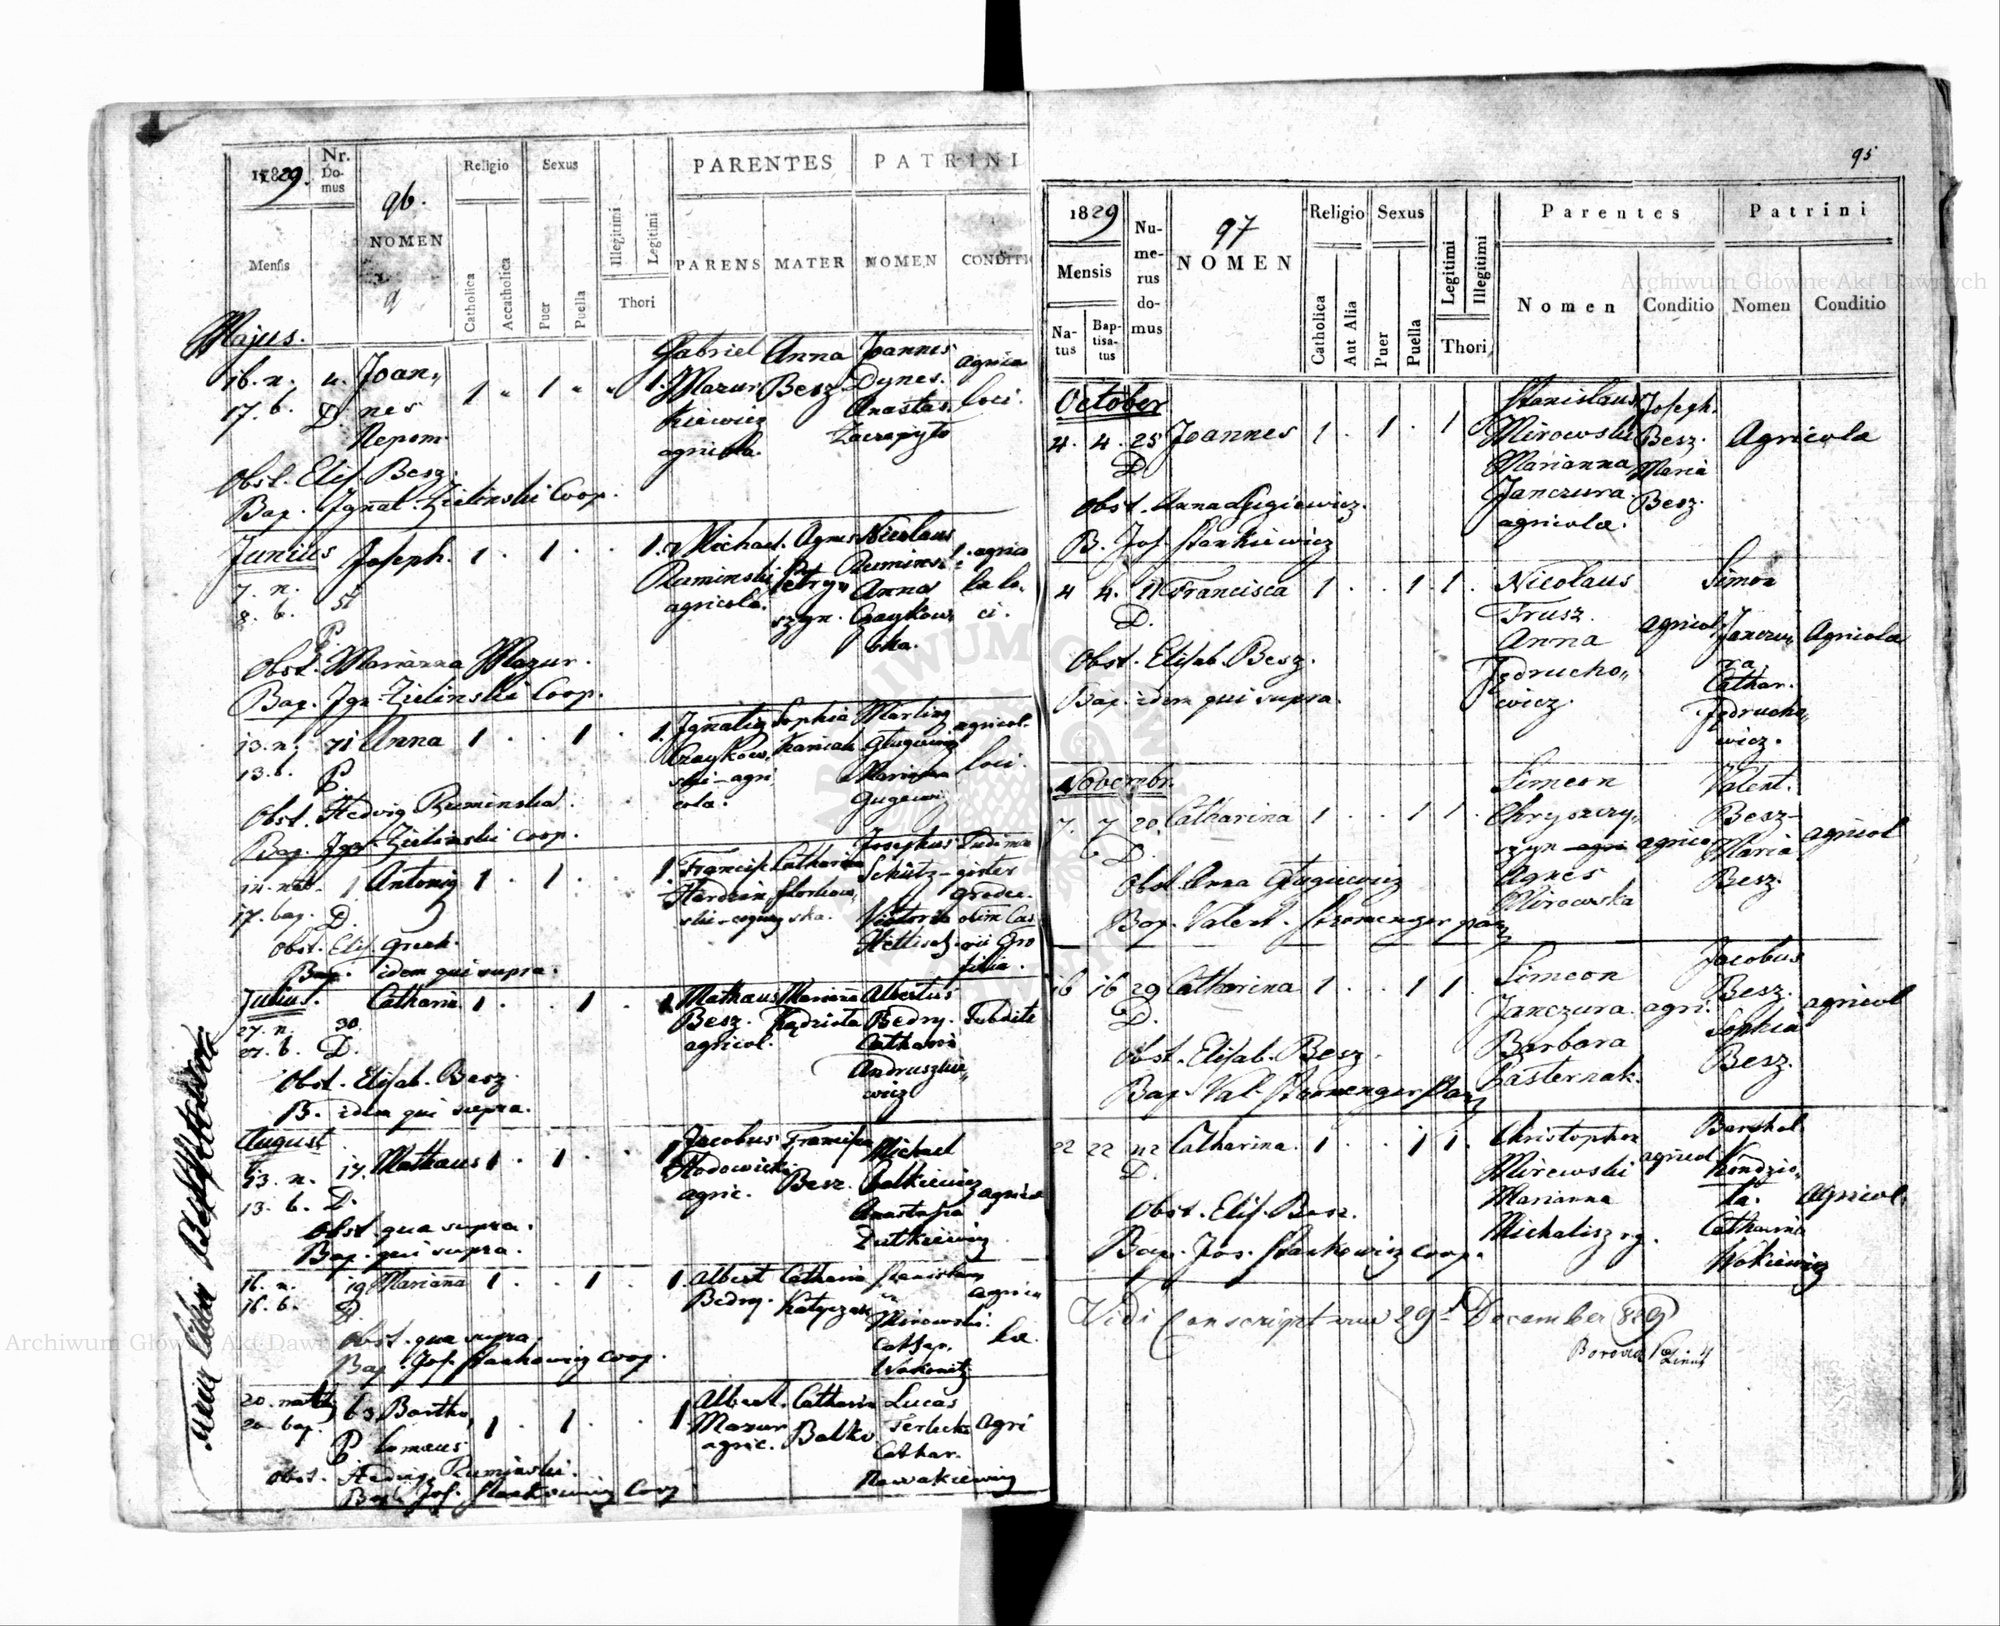 1829.
Nr. Domus
96.
NOMEN
Religio
Sexus
PARENTES
PATRINI
Mensis
Catholica
Accatholica
Puer
Puella
Illegitimi
Legitimi
Thori
PARENS
MATER
NOMEN
CONDITI
Majus.
16. n. 4. Joan„ 1 „ 1 „ „ 1. Gabriel Anna Joannes agrico
17. b. D. nes Mazur Besz. Dynes. loci.
Nepom. kiewicz Anastas.
agricola.
Obst. Elis. Besz.
Bap. Ignat. Zielinski Coop.
Junius Joseph. 1 . 1 . . 1. Michael Agnes Nicolaus
7. n. 51 Ruminski Petry„ Ruminsk agrico
8. b. P agricola. szyn. Anna la lo„
Czaykow„ ci.
ska.
Obst. Marianna Mazur.
Bap. Ign. Zielinski Coop.
13. n. 71 Anna 1 . . 1 . 1. Ignatig Sophia Marting agricol.
13. b. P. Czaykow„ Kaniak loci.
ski - agri Marianna
cola.
Obst. Hedvig Ruminska.
Bap. Ign. Zielinski Coop.
14. nat. 1 Antonig 1 . 1 . . 1. Francisc Catharina Josephus Ludima
17. bap. D. Schütz - gister
Grodec.
Victoria
filia.
Obst. Elis.
Bap. idem qui supra.
Julius. Catharin 1 . . 1 . 1 Mathaus Mariana Albertus
27. n. 30. Besz. Kądziola Bedry. Subdite
27. b. D. agricol. Catharin
Andruszkie„
wicz
Obst. Elisab. Besz.
B. idem qui supra.
August
13. n. 17. Mathaus 1 . 1 . . 1 Jacobus Francisca Michael
13. b. D. Hodowicki Besz. Dalkiewicz agrico
agric. Anastasia
Dutkiewicz
Obst. qua supra.
Bap. qui supra.
16. n. 19 Mariana 1 . . 1 . 1. Albert Catharin Stanislaus
16. b. D. Bedry. Mirowski. agrico
Cathar.
Obst. qua supra.
Bap. Jos. Stankowicz Coop.
20. nat 63 Bartho„ 1 . 1 . . 1 Albert. Catharin Lucas
20. bap. P lomaus Mazur Balko Terlecki Agri
agric. Cathar.
Nowakiewicz
Obst. Hedwig Ruminski.
Bap. Jos. Stankowicz Coop
95
1829
97
NOMEN
Numerus domus
Religio
Sexus
Parentes
Patrini
Mensis
Natus
Baptisatus
Catholica
Aut Alia
Puer
Puella
Legitimi
Illegitimi
Thori
Nomen
Conditio
Nomen
Conditio
October
4. 4. 25 Joannes 1 . 1 . 1 Stanislaus Joseph.
D. Mirowski Besz. Agricola
Marianna Maria
Janczura. Besz.
agricola.
Obst. Anna Gugiewicz.
B. Jos. Stankiewicz
4 4. 11 Francisca 1 . . 1 1 . Nicolaus Simon
D. Trusz. agricol. Janczu„ Agricola
Anna ra,
Jędrucho„ Cathar.
wicz. Jędrucho„
wicz.
Obst. Elisab. Besz.
Bap. idem qui supra.
Novembr.
7. 7 20. Catharina 1 . . 1 1 . Simeon Valent.
D. Chryszczy„ Besz -
szyn agrico Maria agricol
Agnes Besz.
Mirowska
Obst. Anna Gługiewicz
Bap. Valent. Stromenger par
16 16 29 Catharina 1 . . 1 1. Simeon Jacobus
D. Janczura. agri. Besz. agricol
Barbara Sophia
Pasternak. Besz.
Obst. Elisab. Besz.
Bap. Val. Stromenger Par
22 22 42 Catharina. 1 . . 1 1. Christophor Barthol
D. Mirewski agricol Kondzio„
Marianna la. Agricol.
Michaliszyn. Catharina
Wokiewicz
Obst. Elis. Besz.
Bap. Jos. Stankowicz Coop.
Vidi Conscriptum 29t December 829
Archiwum Główne Akt Dawnych
Archiwum Główne Akt Dawnych